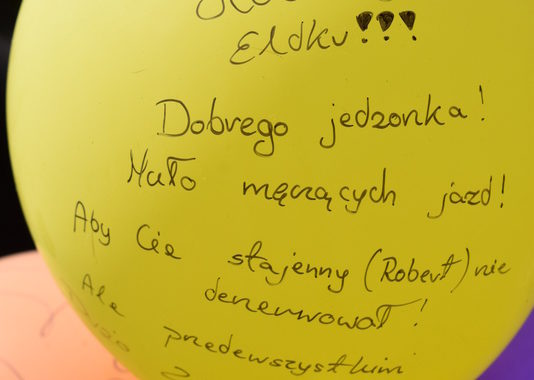 Eldku!!!
Dobrego jedzonka!
Mało męczących jazd!
Aby Cie stajenny (Robert) nie
denerwował!
Ale przedewszystkim